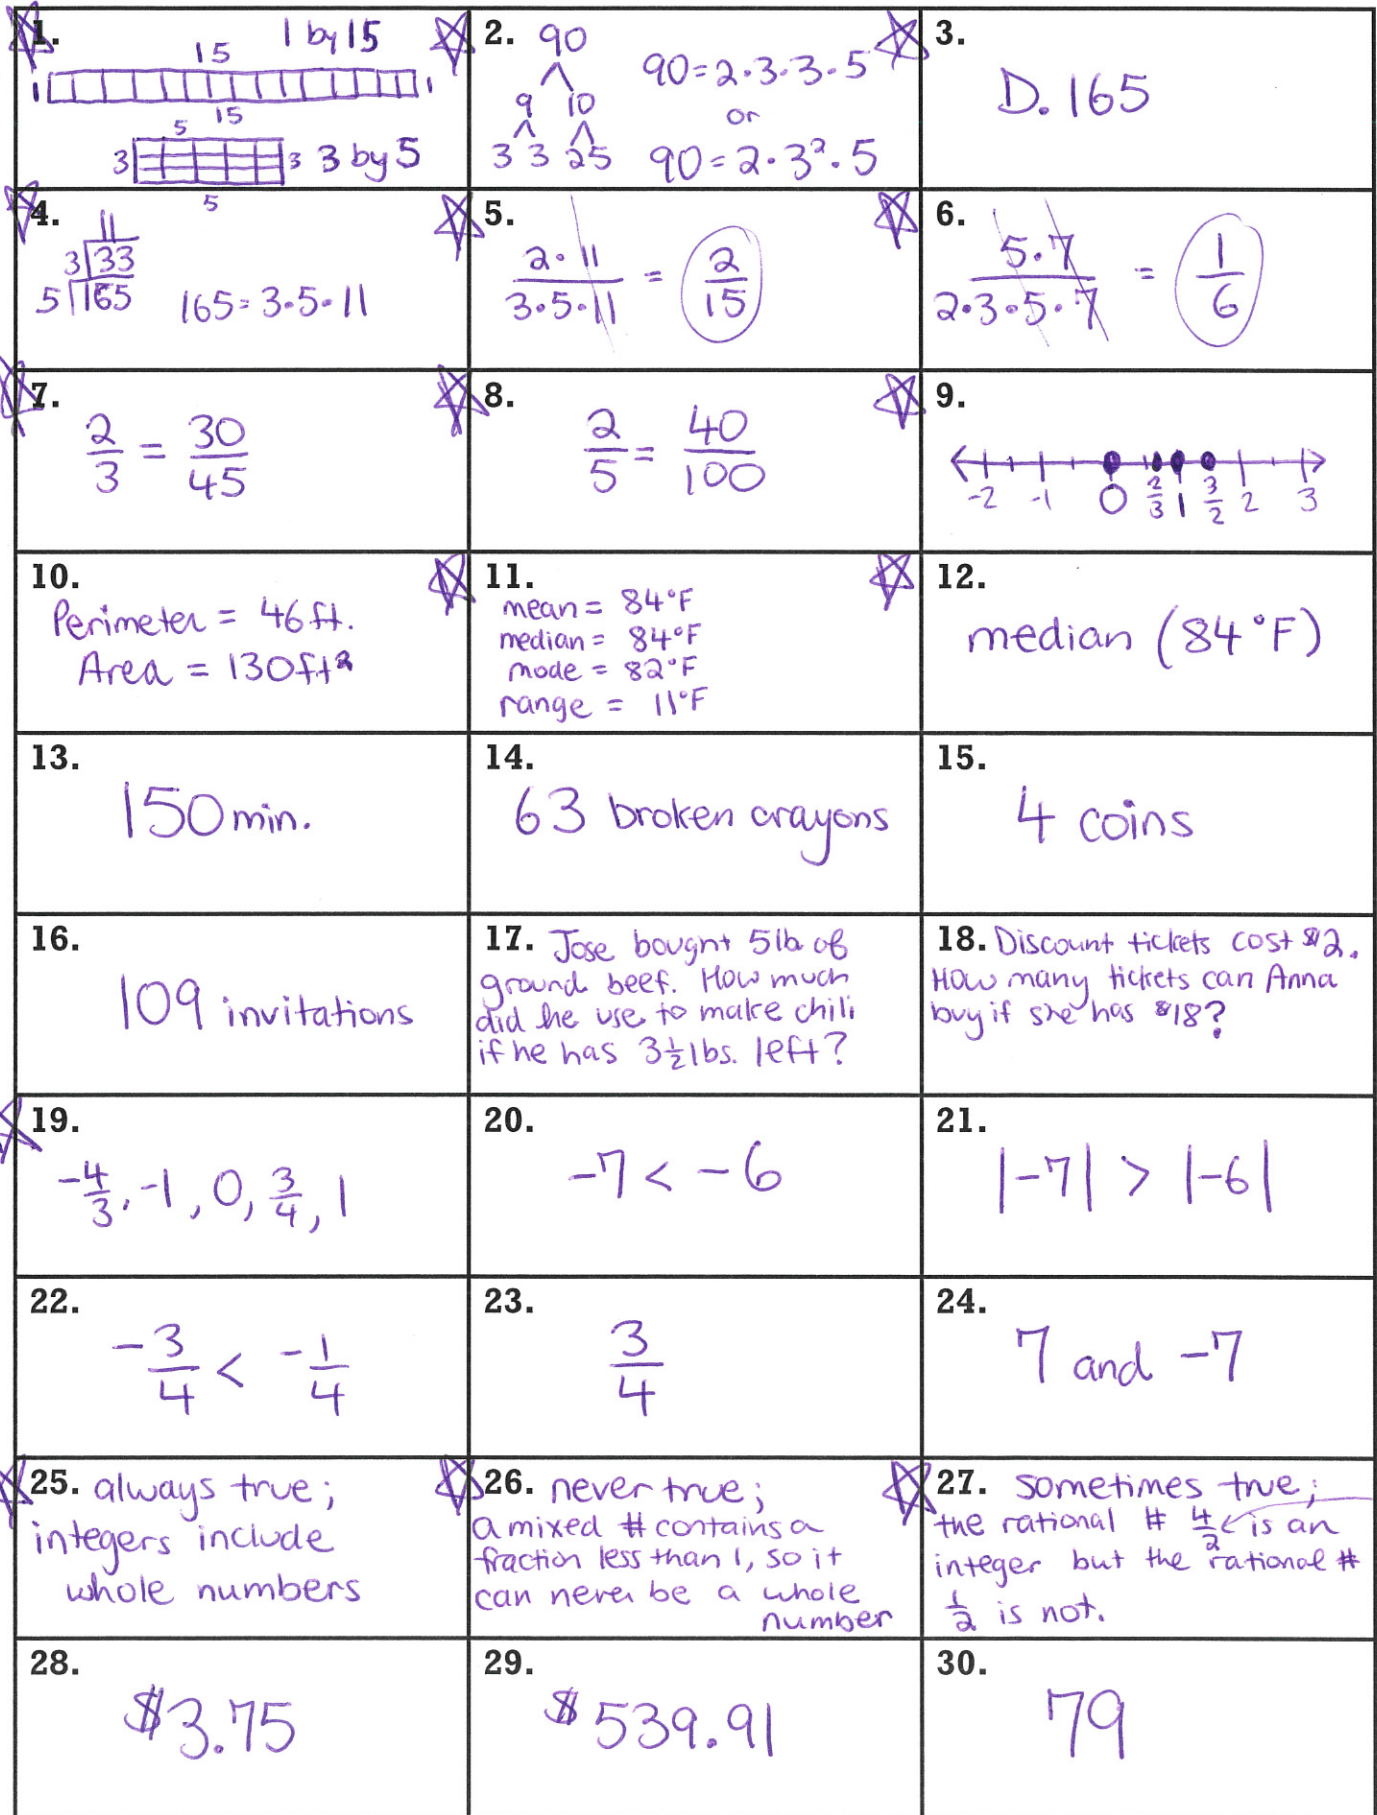 1.
1 by 15
15
1 1
15
5
3 3 3 by 5
5
2. 90
9 10
3 3 2 5
90=2·3·3·5
or
90=2·3²·5
3.
D. 165
4.
11
3 33
5 165
165=3·5·11
5.
2·11
3·5·11
=
2
15
6.
5·7
2·3·5·7
=
1
6
7.
2/3 = 30/45
8.
2/5 = 40/100
9.
-2 -1 0 2/3 1 3/2 2 3
10.
Perimeter = 46ft.
Area = 130ft²
11.
mean = 84°F
median = 84°F
mode = 82°F
range = 11°F
12.
median (84°F)
13.
150 min.
14.
63 broken crayons
15.
4 coins
16.
109 invitations
17. Jose bought 5lb of
ground beef. How much
did he use to make chili
if he has 3 1/2 lbs. left?
18. Discount tickets cost $2.
How many tickets can Anna
buy if she has $18?
19.
-4/3, -1, 0, 3/4, 1
20.
-7 < -6
21.
|-7| > |-6|
22.
-3/4 < -1/4
23.
3/4
24.
7 and -7
25. always true;
integers include
whole numbers
26. never true;
a mixed # contains a
fraction less than 1, so it
can never be a whole
number
27. sometimes true;
the rational # 4/2 is an
integer but the rational #
1/2 is not.
28.
$3.75
29.
$539.91
30.
79